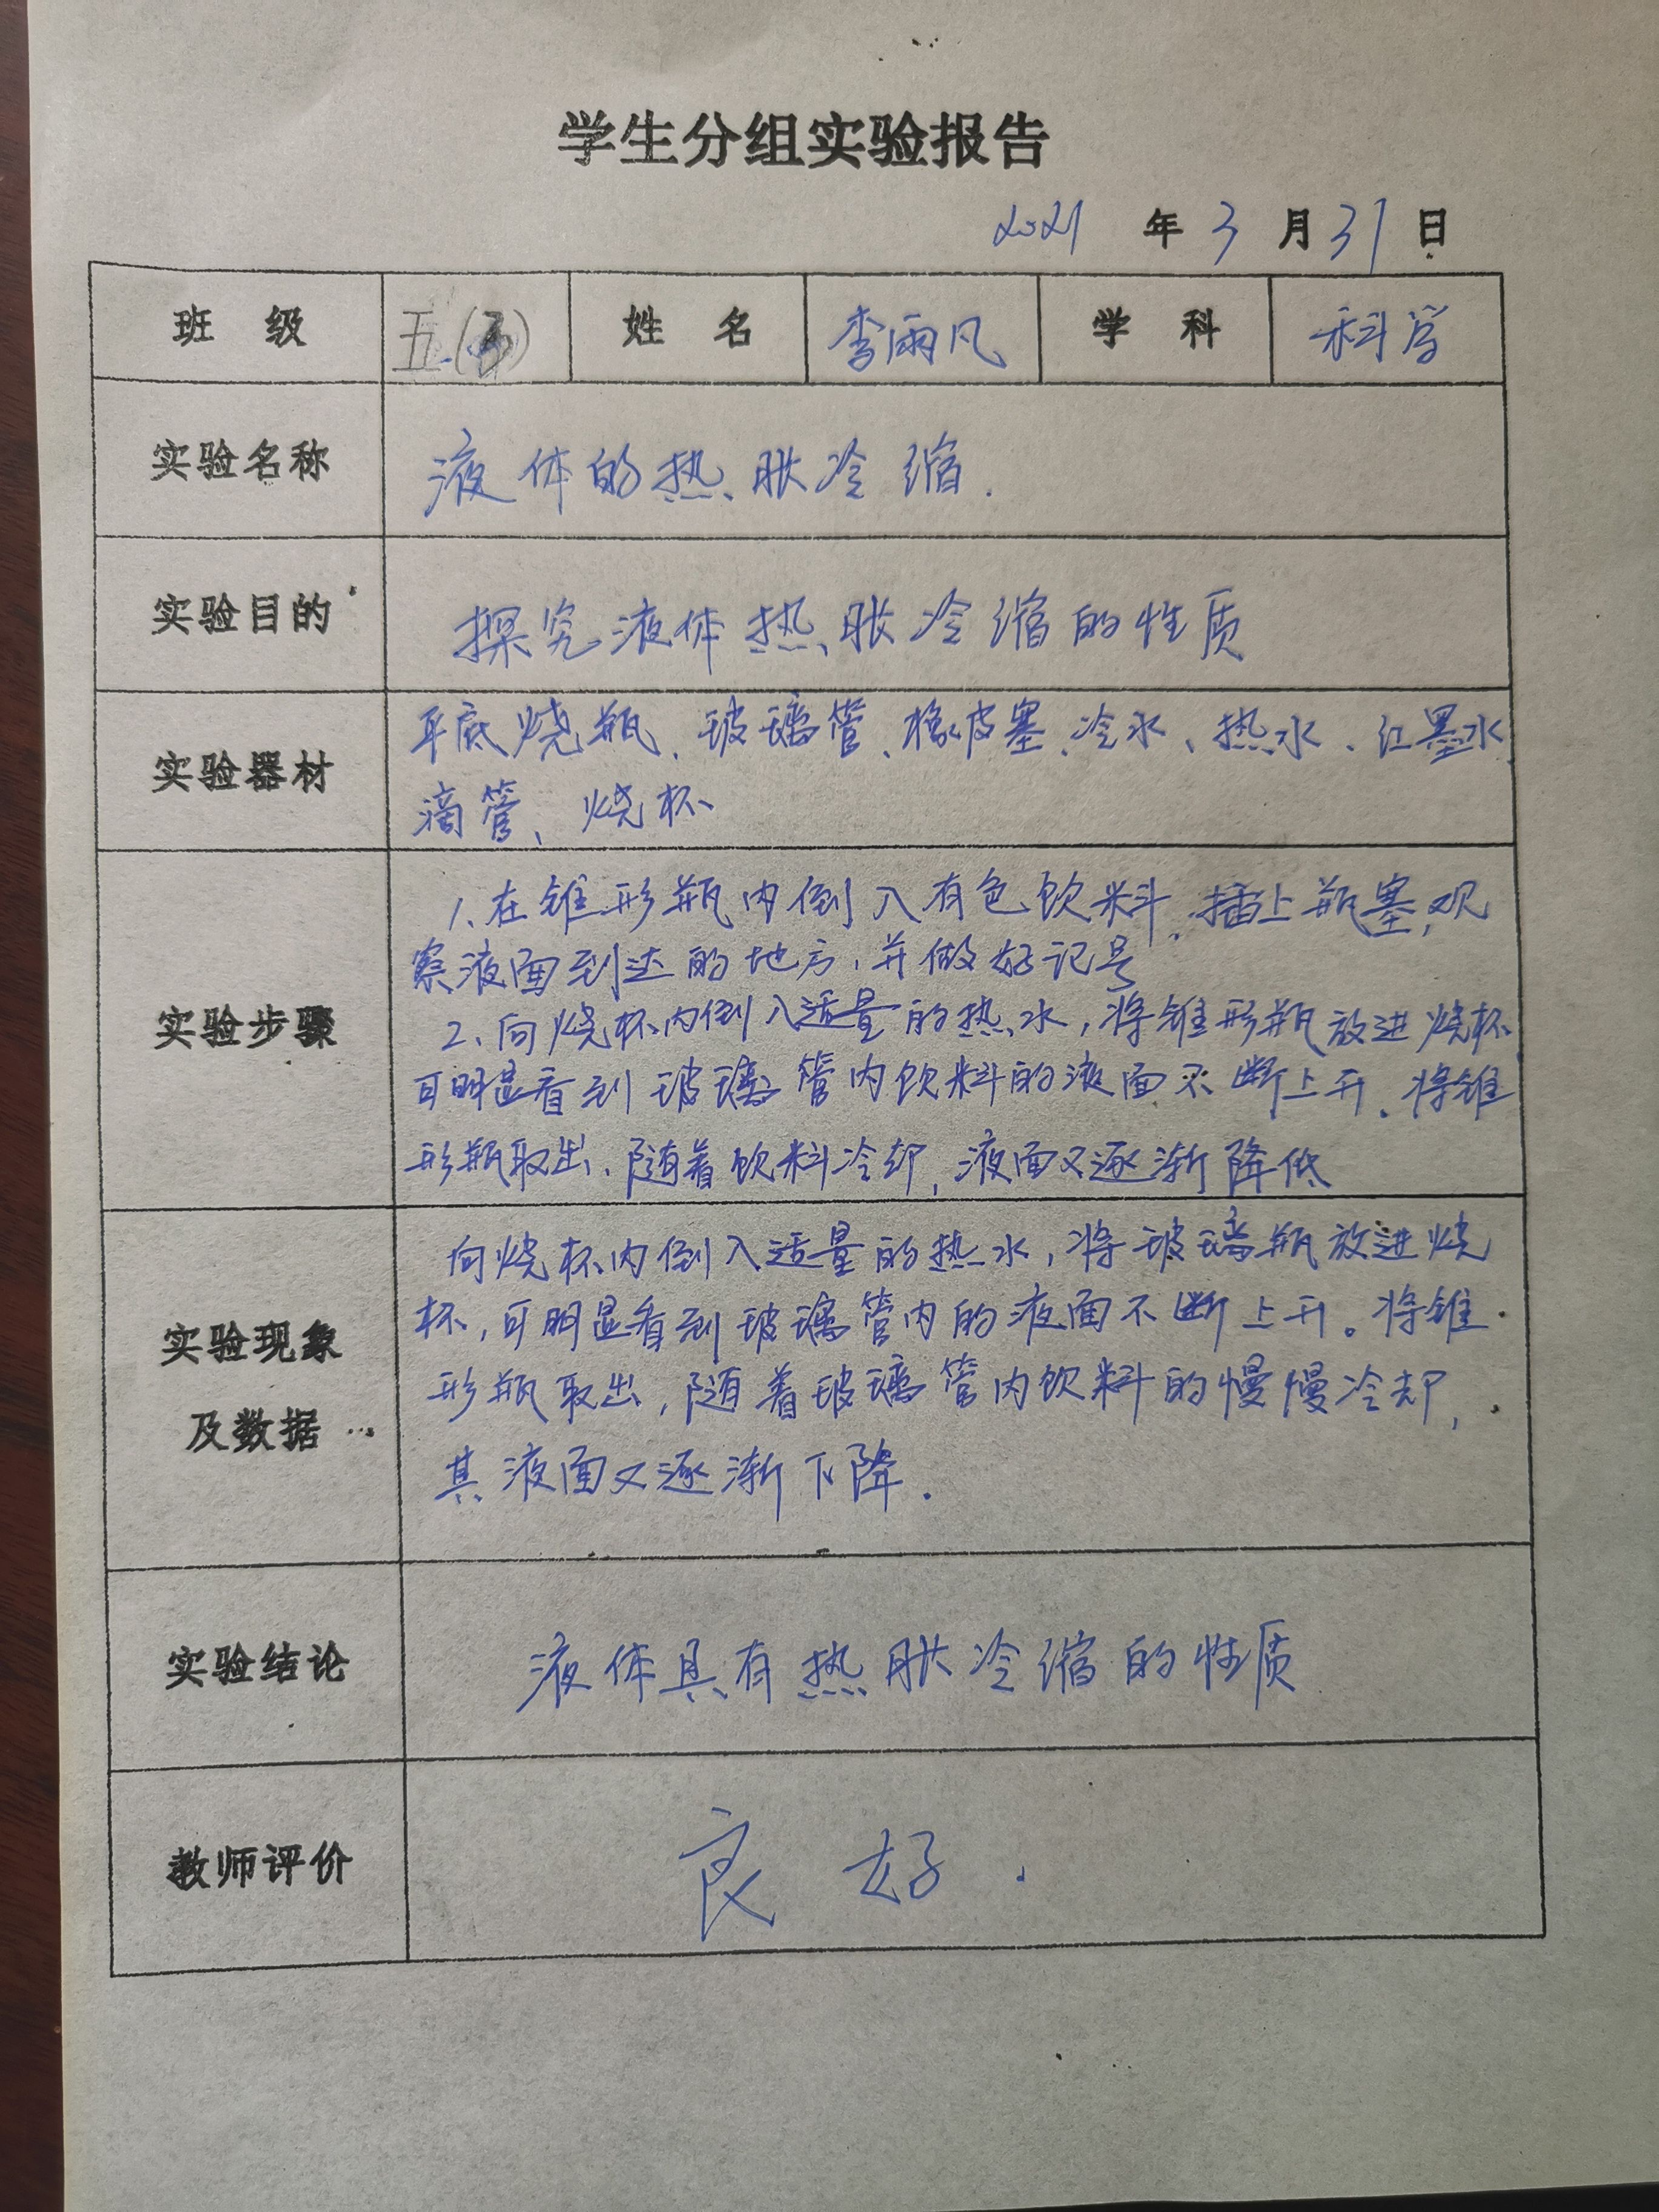 学生分组实验报告
2021 年 3 月 31 日
班 级 五.(3) 姓 名 李雨凡 学 科 科学
实验名称 液体的热胀冷缩.
实验目的 探究液体热胀冷缩的性质
实验器材
平底烧瓶、玻璃管、橡皮塞、冷水、热水、红墨水、
滴管、烧杯
实验步骤
1.在锥形瓶内倒入有色饮料.插上瓶塞,观
察液面到达的地方,并做好记号
2、向烧杯内倒入适量的热水,将锥形瓶放进烧杯
可明显看到玻璃管内饮料的液面不断上升.将锥
形瓶取出、随着饮料冷却,液面又逐渐降低
实验现象
及数据
向烧杯内倒入适量的热水,将玻璃瓶放进烧
杯,可明显看到玻璃管内的液面不断上升。将锥
形瓶取出,随着玻璃管内饮料的慢慢冷却,
其液面又逐渐下降.
实验结论 液体具有热胀冷缩的性质
教师评价 良好.